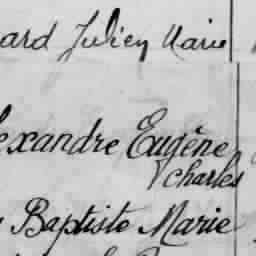 ard Julien Marie
exandre Eugène
Charles
Baptiste Marie